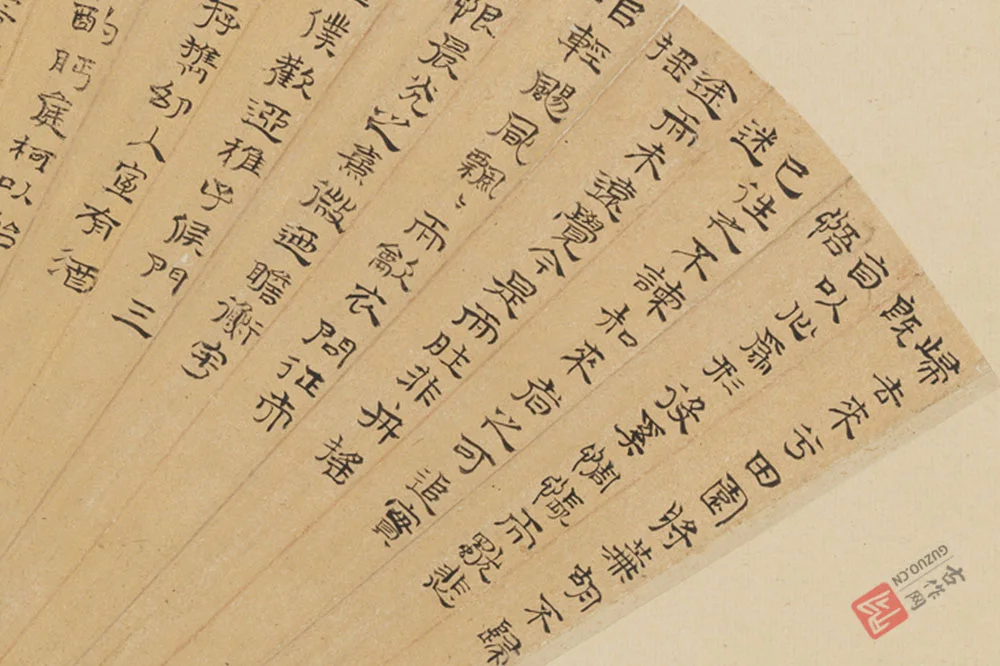 歸去來兮田園將蕪胡不歸
既
自以心爲形役奚惆悵而獨悲
悟
已往之不諫知來者之可追實
迷
途而未遠覺今是而昨非舟搖
搖
以輕颺風飄〻而龡衣問征夫
恨晨光之熹微迺瞻衡宇
僕歡迎稚子候門三
攜幼入室有酒
酌眄庭柯以怡
古作网
GUZUO.CN